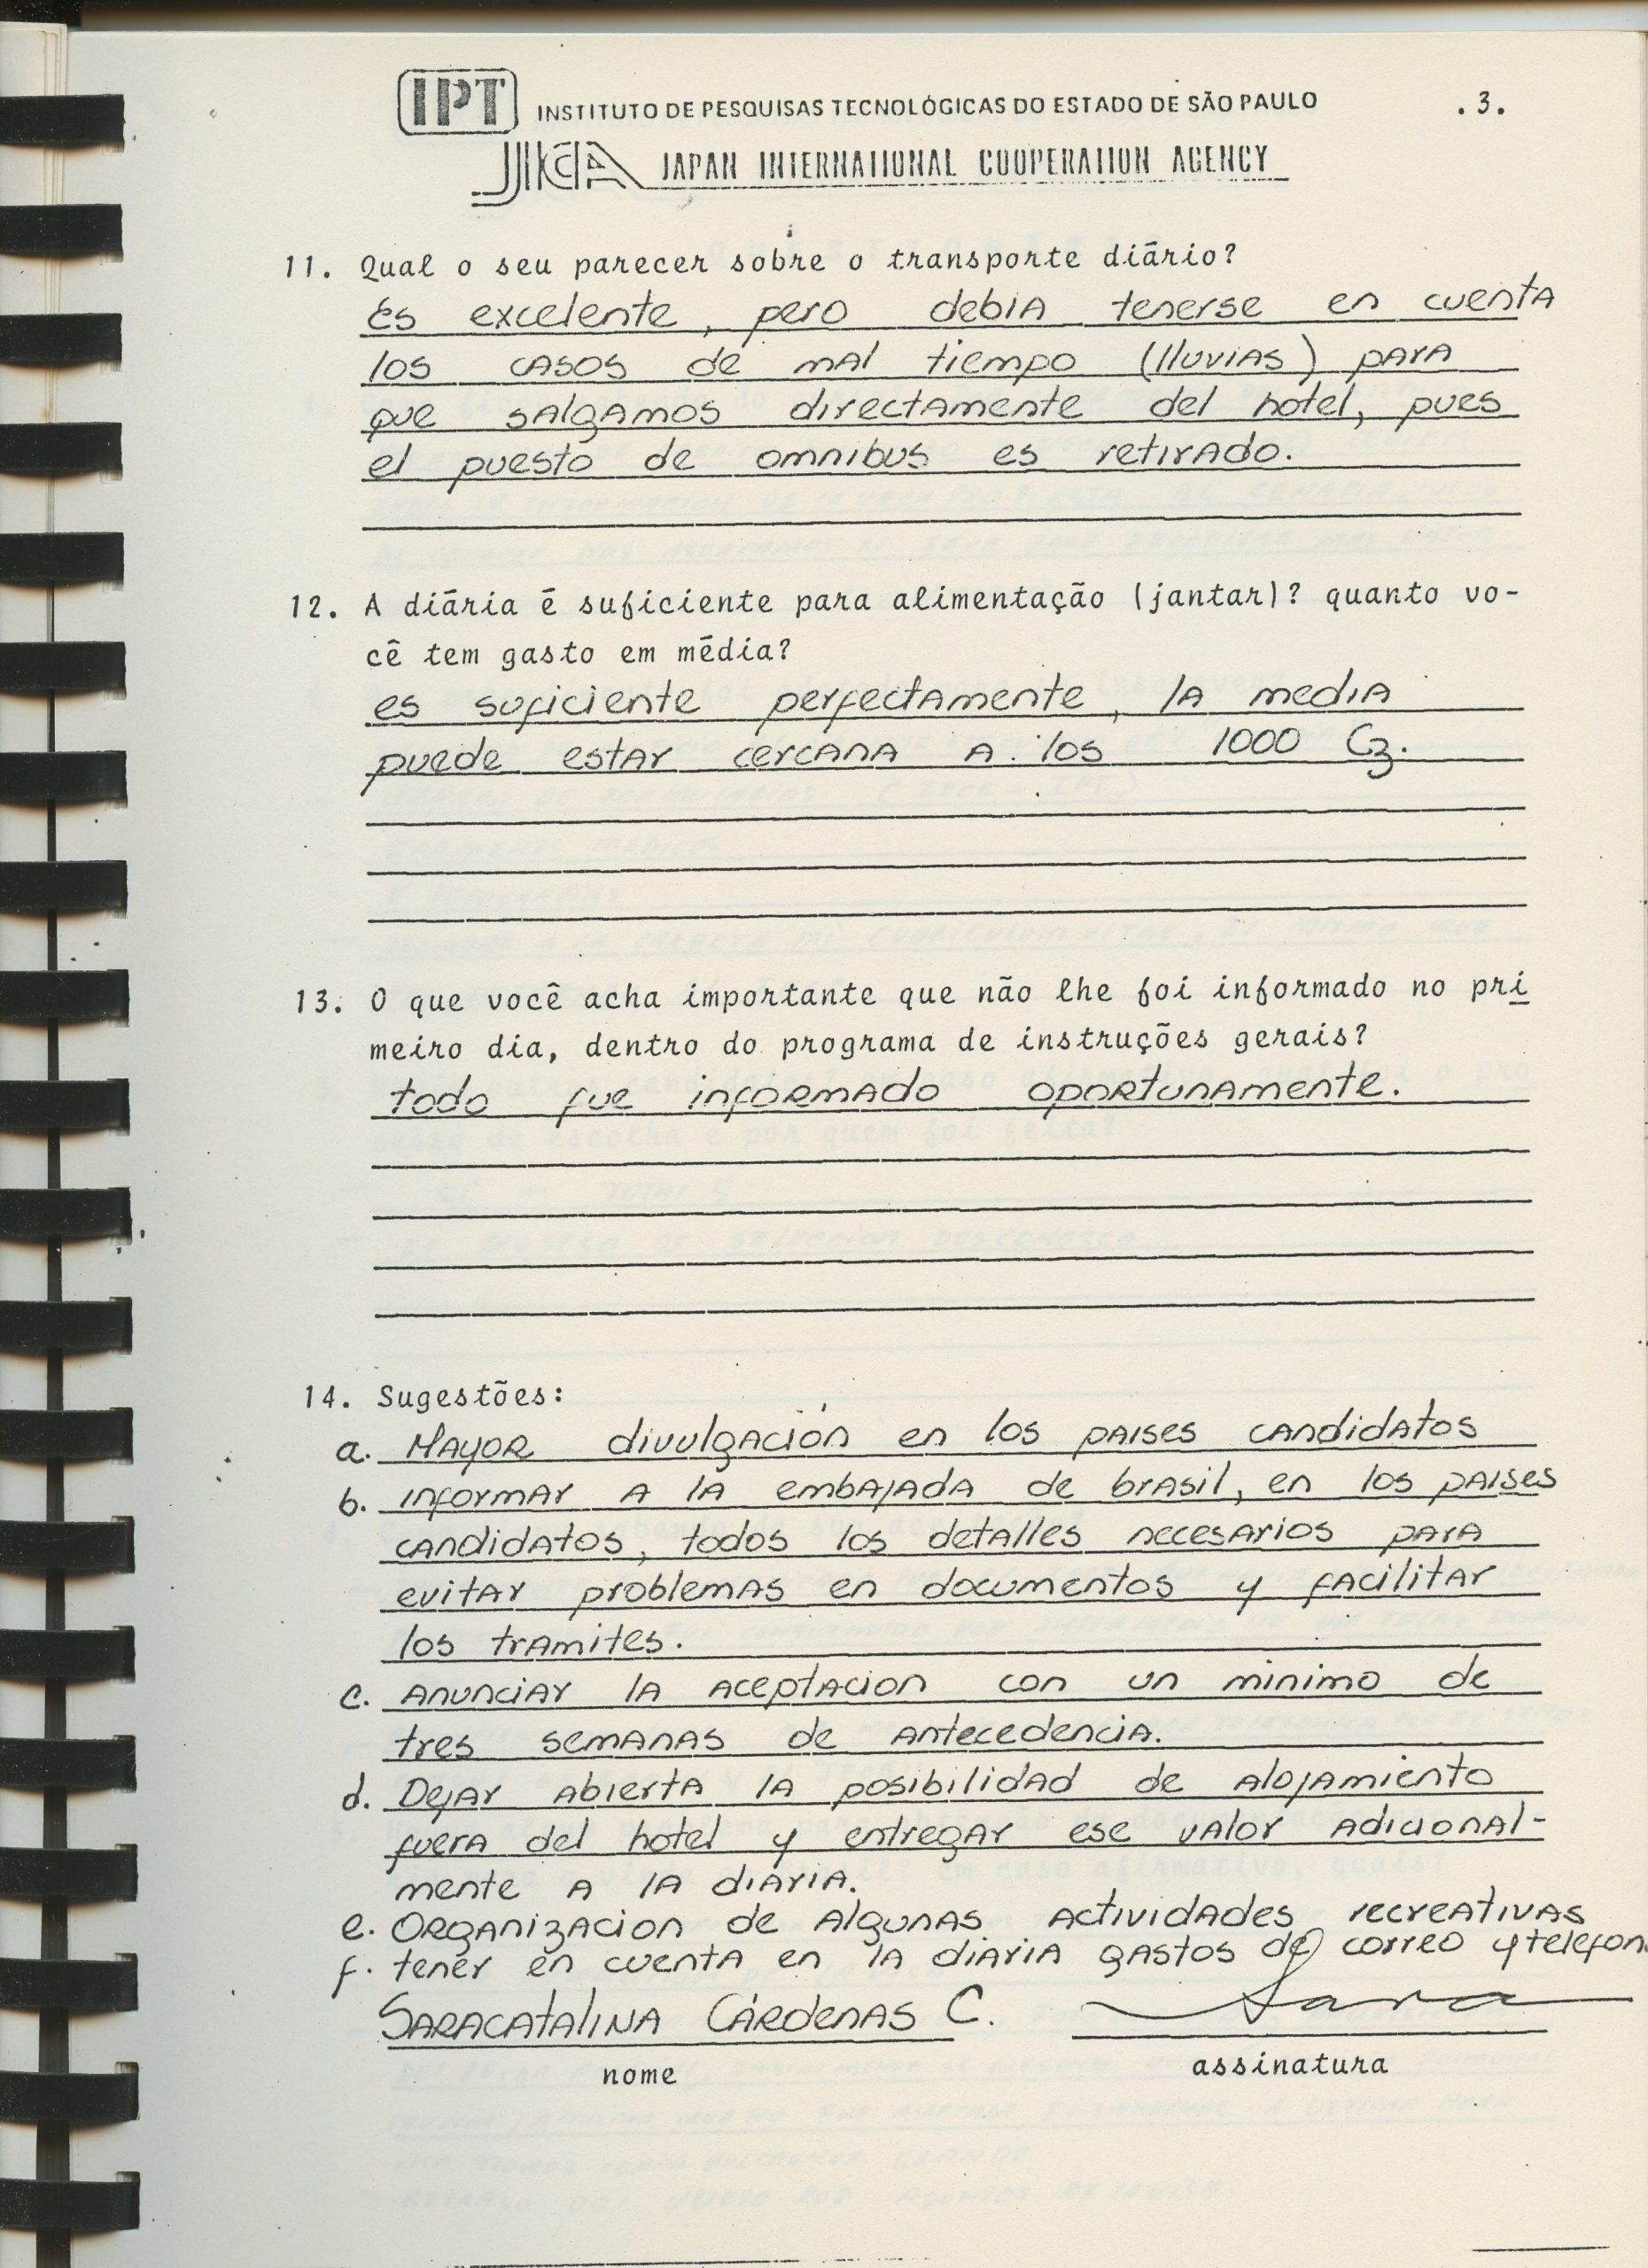 IPT INSTITUTO DE PESQUISAS TECNOLÓGICAS DO ESTADO DE SÃO PAULO .3.
JICA JAPAN INTERNATIONAL COOPERATION AGENCY
11. Qual o seu parecer sobre o transporte diário?
És excelente, pero debia tenerse en cuenta
los casos de mal tiempo (lluvias) para
que salgamos directamente del hotel, pues
el puesto de omnibus es retirado.
12. A diária é suficiente para alimentação (jantar)? quanto vo-
cê tem gasto em média?
es suficiente perfectamente, la media
puede estar cercana a los 1000 Cz.
13. O que você acha importante que não lhe foi informado no pri
meiro dia, dentro do programa de instruções gerais?
todo fue informado oportunamente.
14. Sugestões:
a. Mayor divulgación en los paises candidatos
b. informar a la embajada de brasil, en los paises
candidatos, todos los detalles necesarios para
evitar problemas en documentos y facilitar
los tramites.
c. anunciar la aceptacion con un minimo de
tres semanas de antecedencia.
d. Dejar abierta la posibilidad de alojamiento
fuera del hotel y entregar ese valor adicional-
mente a la diaria.
e. Organizacion de algunas actividades recreativas
f. tener en cuenta en la diaria gastos de correo y telefon
SARACATALINA CÁRDENAS C. Sara
nome assinatura